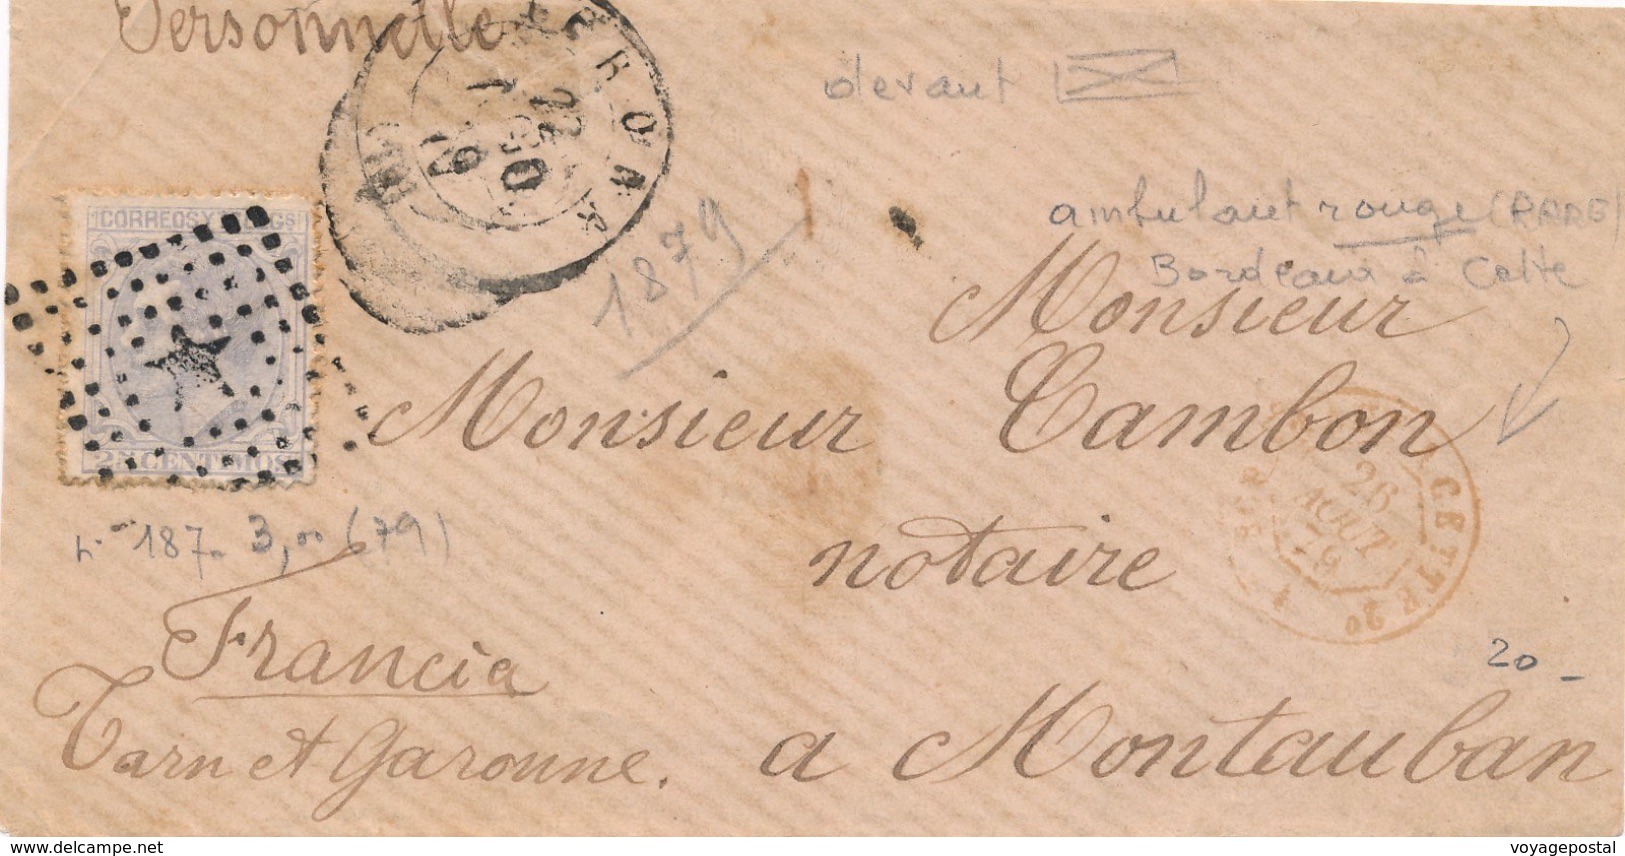 Personnelle
GERONA
22
AGO
79
devant
1879
ambulant rouge (RARE)
Bordeaux à Cette
CORREOS Y
25 CENTIMOS
Monsieur
Monsieur Cambon
notaire
CETTE
26
AOUT
79
n° 187 3,00 (79)
Francia
20 -
Tarn et Garonne. a Montauban
delcampe.net
voyagepostal